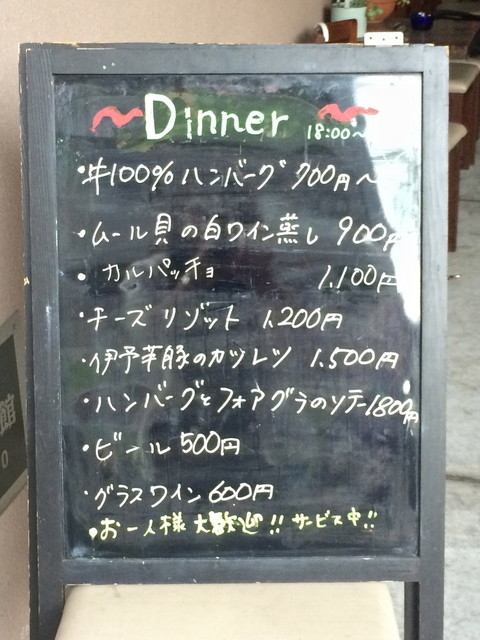 ~Dinner~
18:00~
・牛100%ハンバーグ 700円~
・ムール貝の白ワイン蒸し 900円
・カルパッチョ 1.100円
・チーズリゾット 1.200円
・伊予華豚のカツレツ 1.500円
・ハンバーグとフォアグラのソテー1800円
・ビール 500円
・グラスワイン 600円
・お一人様大歓迎!! サービス中!!
館
0